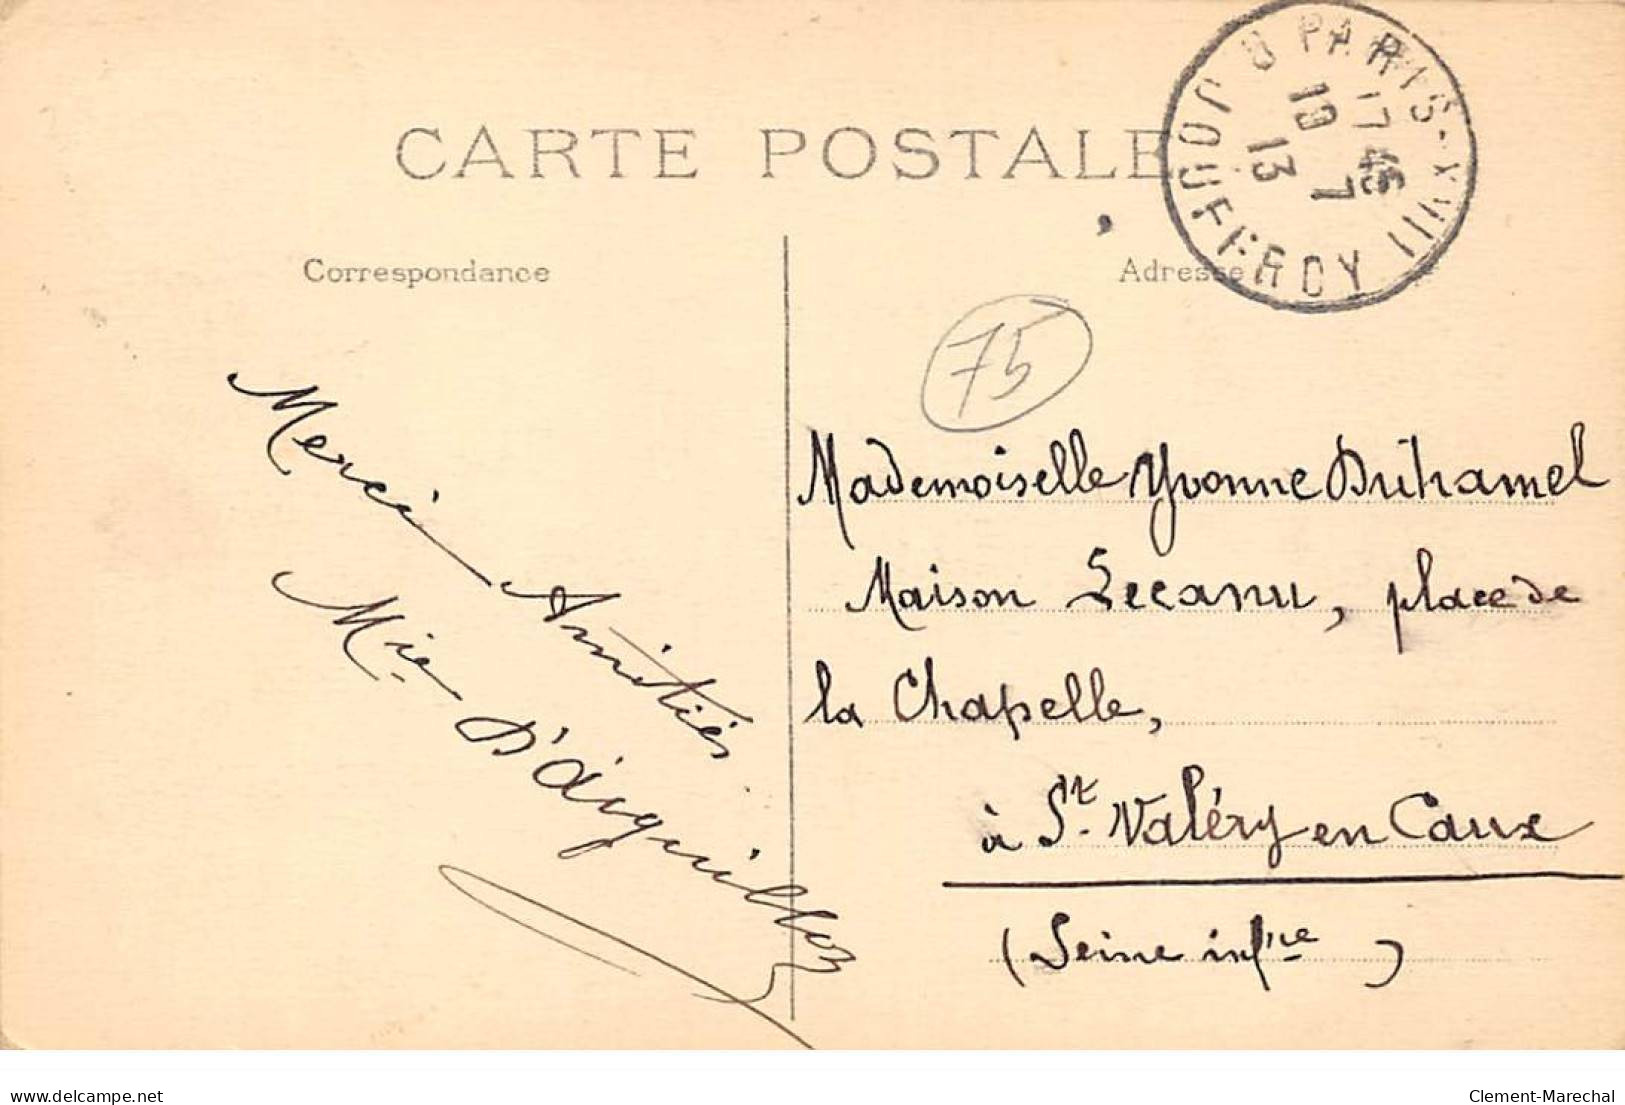 CARTE POSTALE
Correspondance
Adresse
PARIS-XVIII
17 45
19 7
13
R. DUC JOUFFROY
75
Merci Amitiés
Mie D'aiguillon
Mademoiselle Yvonne Duhamel
Maison Lecanu, place de
la Chapelle,
à St. Valéry en Caux
(Seine infre)
delcampe.net
Clement-Marechal